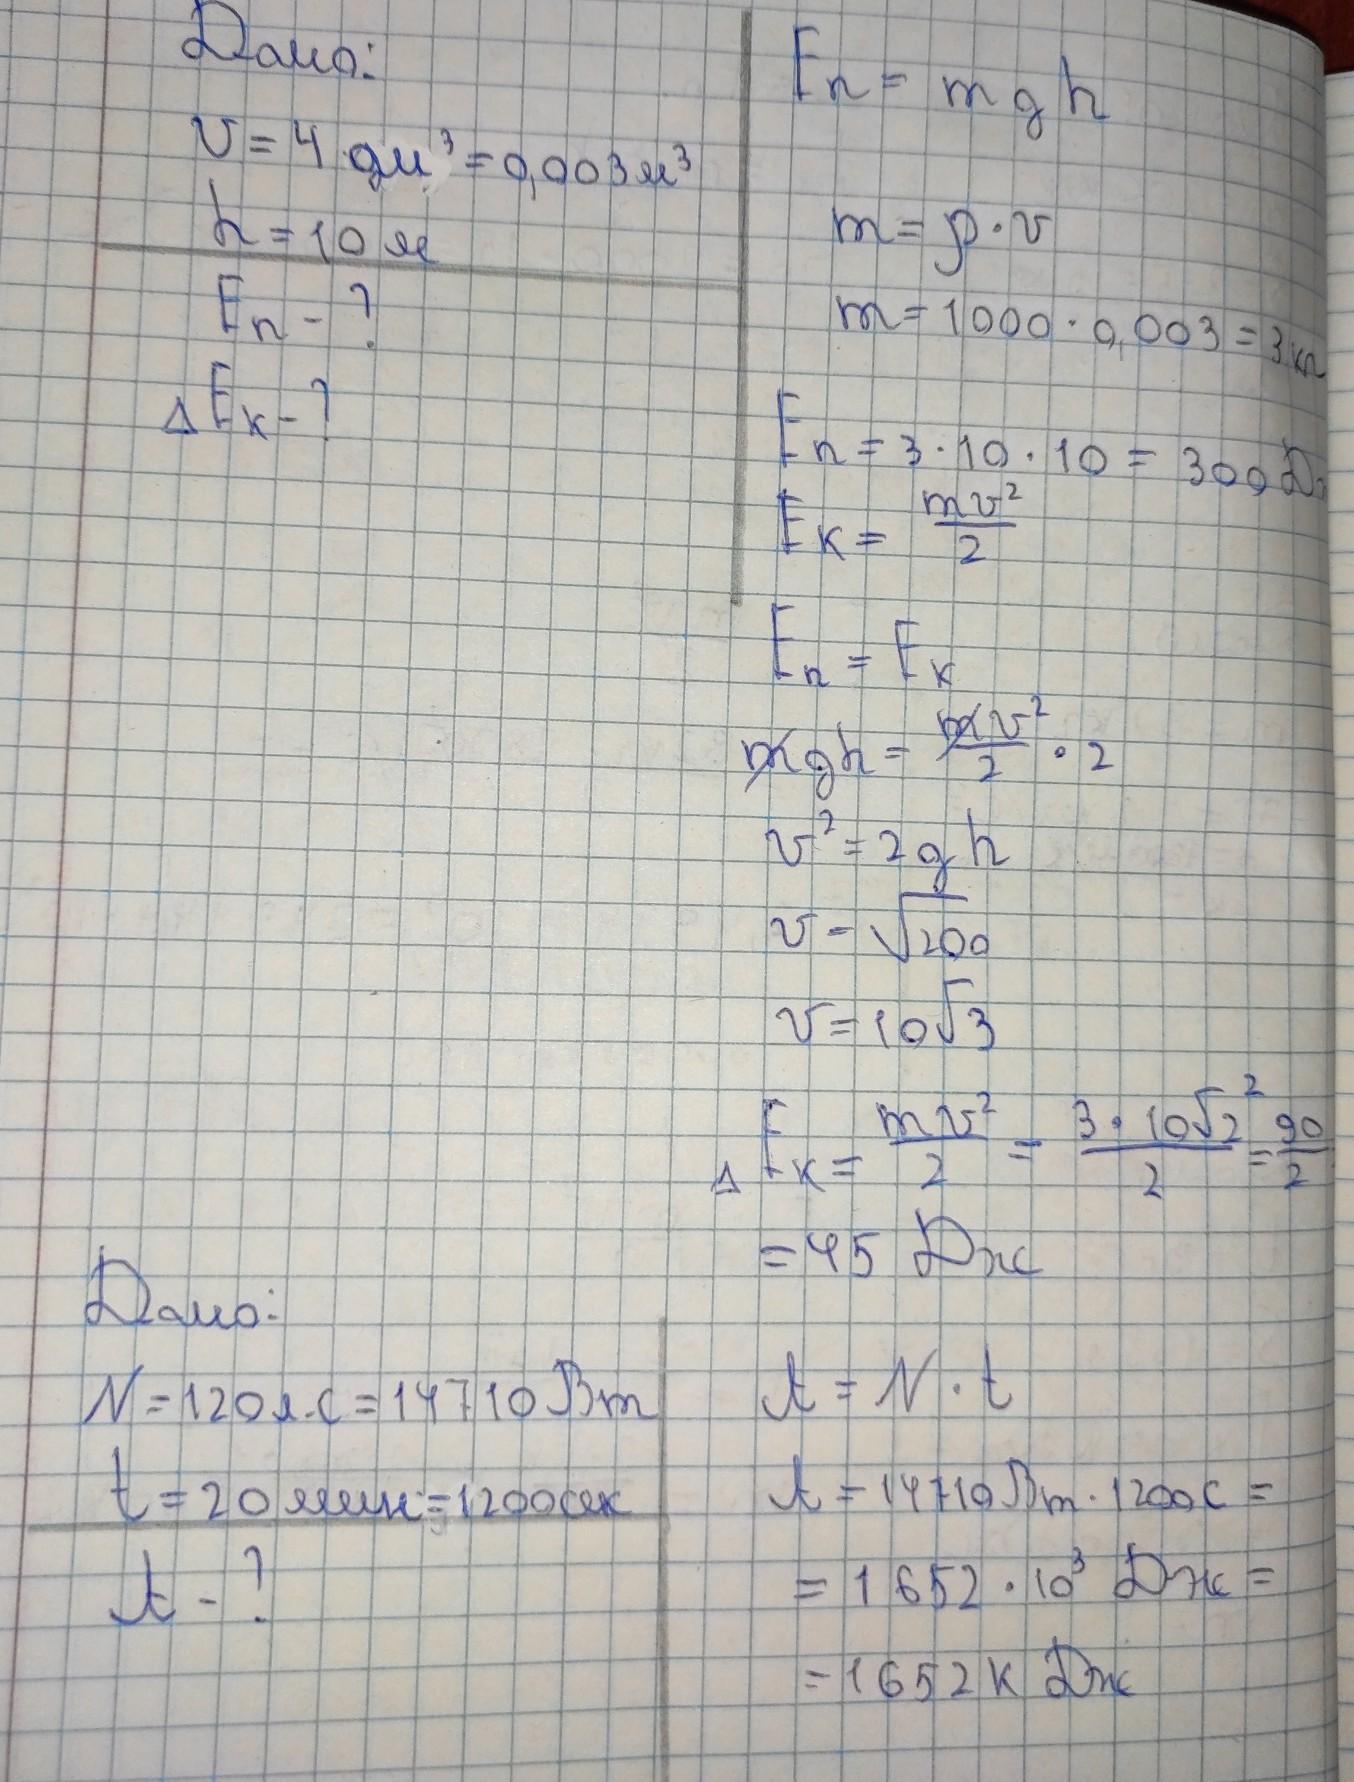 Дано:
v = 4 дм³ = 0,003 м³
h = 10 м
Eп - ?
Δ Eк - ?
Eп = mgh
m = ρ · v
m = 1000 · 0,003 = 3 кг
Eп = 3 · 10 · 10 = 300 Дж
Eк = mv²/2
Eп = Eк
mgh = mv²/2 · 2
v² = 2gh
v - √200
v = 10√3
Δ Eк = mv²/2 = 3 · 10√2²/2 = 90/2
= 45 Дж
Дано:
N = 120 л.с = 14710 Вт
t = 20 мин = 1200 сек
A - ?
A = N · t
A = 14710 Вт · 1200 с =
= 1652 · 10³ Дж =
= 1652 к Дж